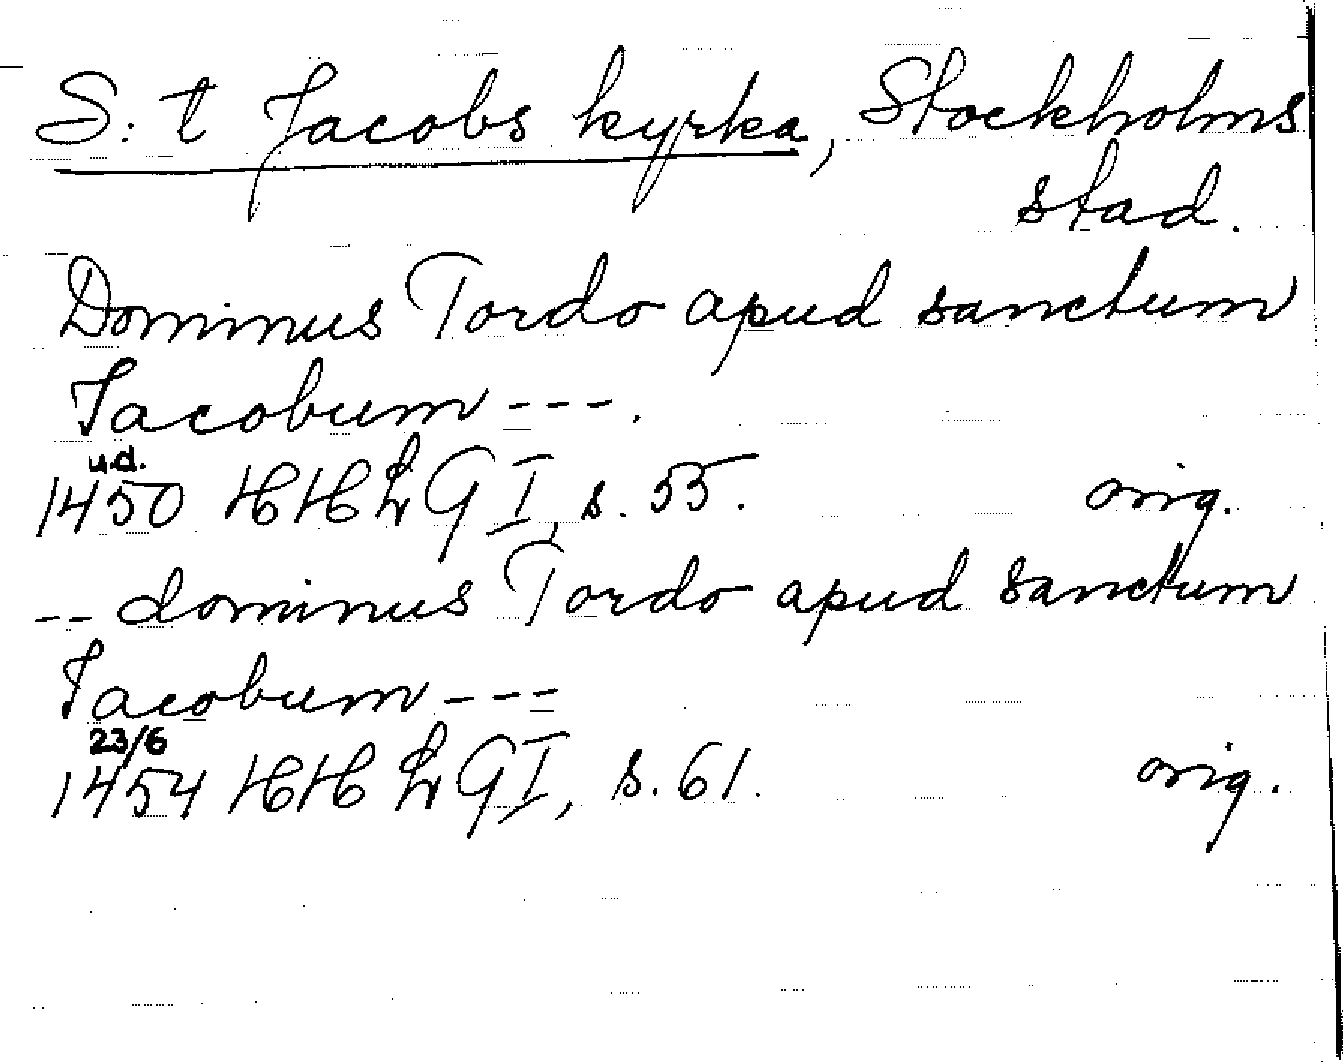 S:t Jacobs kyrka, Stockholms
stad.
Dominus Tordo apud sanctum
Jacobum ---.
u.d.
1450 HHLG I, s. 55. orig.
-- dominus Tordo apud sanctum
Jacobum ---
23/6
1454 HHLG I, s. 61. orig.